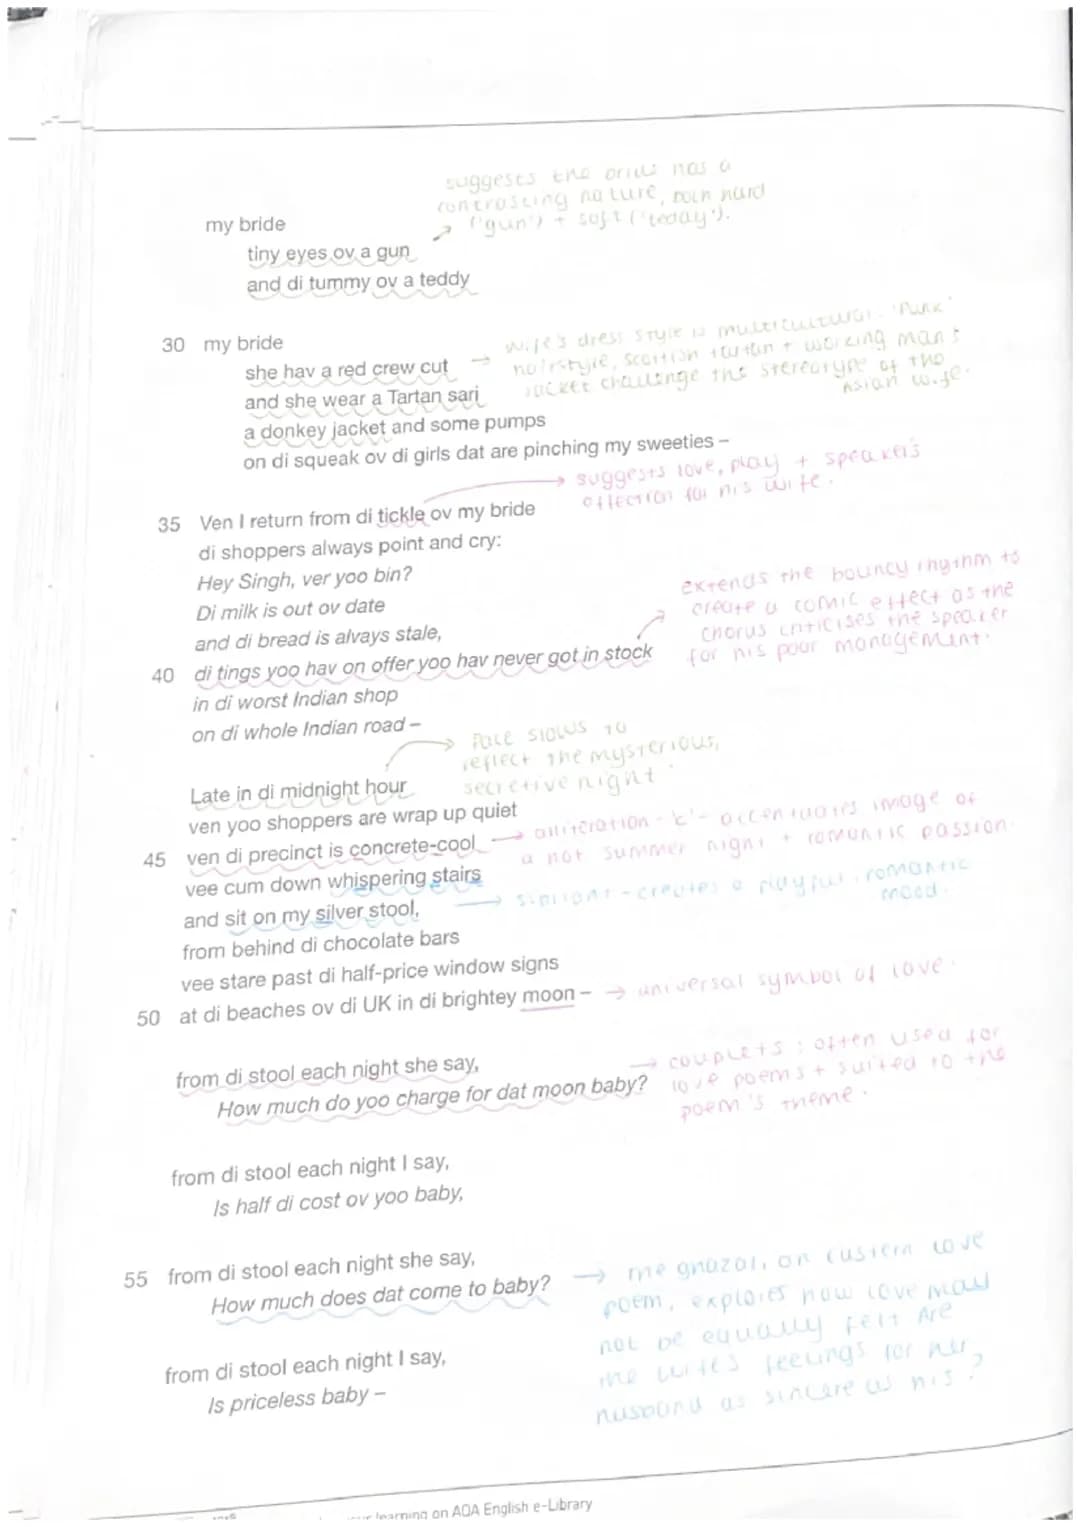 suggests the bride has a
contrasting nature, both hard
('gun') + soft ('teddy').
my bride
tiny eyes ov a gun
and di tummy ov a teddy
30 my bride
she hav a red crew cut
and she wear a Tartan sari
a donkey jacket and some pumps
on di squeak ov di girls dat are pinching my sweeties –
wife's dress style is multicultural. 'Punk'
hairstyle, Scottish tartan + working man's
jacket challenge the stereotype of the
Asian wife.
suggests love, play + speaker's
affection for his wife.
35 Ven I return from di tickle ov my bride
di shoppers always point and cry:
Hey Singh, ver yoo bin?
Di milk is out ov date
and di bread is alvays stale,
40 di tings yoo hav on offer yoo hav never got in stock
in di worst Indian shop
on di whole Indian road –
extends the bouncy rhythm to
create a comic effect as the
chorus criticises the speaker
for his poor management.
Pace slows to
reflect the mysterious,
secretive night.
Late in di midnight hour
ven yoo shoppers are wrap up quiet
45 ven di precinct is concrete-cool
vee cum down whispering stairs
and sit on my silver stool,
from behind di chocolate bars
vee stare past di half-price window signs
50 at di beaches ov di UK in di brightey moon –
alliteration - 'c' - accentuates image of
a hot summer night + romantic passion.
sibilant - creates a playful, romantic
mood.
universal symbol of love.
from di stool each night she say,
How much do yoo charge for dat moon baby?
couplets: often used for
love poems + suited to the
poem's theme.
from di stool each night I say,
Is half di cost ov yoo baby,
55 from di stool each night she say,
How much does dat come to baby?
from di stool each night I say,
Is priceless baby –
the ghazal, an eastern love
poem, explores how love may
not be equally felt. Are
the wife's feelings for her
husband as sincere as his?
learning on AQA English e-Library